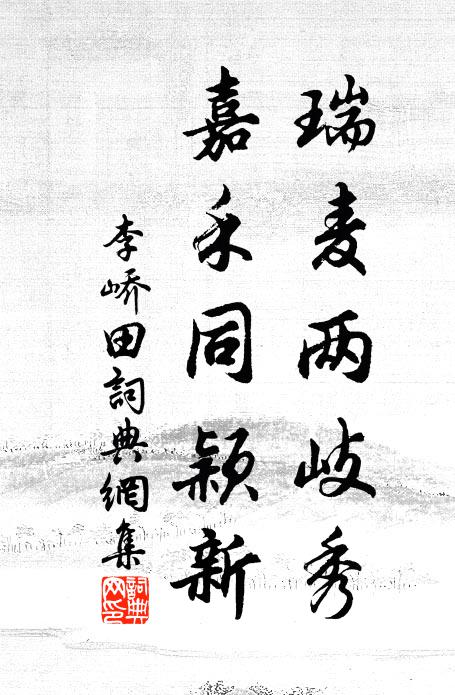 瑞麦两岐秀
嘉禾同颖新
李峤田詞典網集
詞典网印